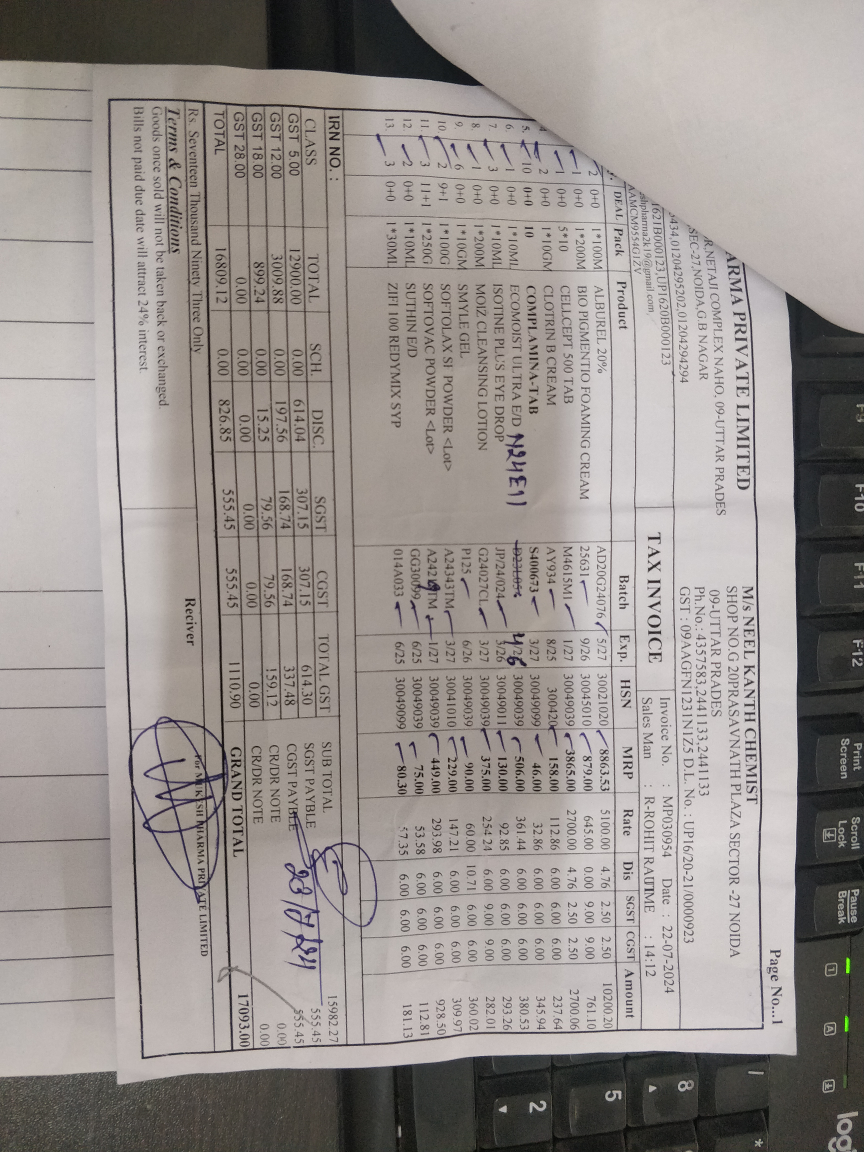 Page No....1
ARMA PRIVATE LIMITED
R,NETAJI COMPLEX NAHO, 09-UTTAR PRADES
SEC-27,NOIDA,G.B NAGAR
5434,01204295202,01204294294
1621B000123,UP1620B000123
shpharma2k19@gmail.com
AAMCM9554G1ZV
TAX INVOICE
M/s NEEL KANTH CHEMIST
SHOP NO.G 20PRASAVNATH PLAZA, SECTOR -27 NOIDA
09-UTTAR PRADES
Ph.No.: 4357583,2441133,2441133
GST : 09AAGFN1231N1Z5 D.L. No. : UP16/20-21/0000923
Invoice No. : MP030954 Date : 22-07-2024
Sales Man : R-ROHIT RAUTIME : 14:12
DEAL Pack Product Batch Exp. HSN MRP Rate Dis SGST CGST Amount
2 0+0 1*100M ALBUREL 20% AD20G24076 5/27 30021020 8863.53 5100.00 4.76 2.50 2.50 10200.20
1 0+0 1*200M BIO PIGMENTIO FOAMING CREAM 25631 9/26 30045010 879.00 645.00 0.00 9.00 9.00 761.10
1 0+0 5*10 CELLCEPT 500 TAB M4615M1 1/27 30049039 3865.00 2700.00 4.76 2.50 2.50 2700.06
4 2 0+0 1*10GM CLOTRIN B CREAM AY934 8/25 300420 158.00 112.86 6.00 6.00 6.00 237.64
5. 10 0+0 10 COMPLAMINA-TAB S400673 3/27 30049099 46.00 32.86 6.00 6.00 6.00 345.94
6. 1 0+0 1*10ML ECOMOIST ULTRA E/D N24E11 4/26 30049039 506.00 361.44 6.00 6.00 6.00 380.53
7. 3 0+0 1*10ML ISOTINE PLUS EYE DROP JP/24/024 3/26 30049011 130.00 92.85 6.00 6.00 6.00 293.26
8. 1 0+0 1*200M MOIZ CLEANSING LOTION G24027CL 3/27 30049039 375.00 254.24 6.00 9.00 9.00 282.01
9. 6 0+0 1*10GM SMYLE GEL P125 6/26 30049039 90.00 60.00 10.71 6.00 6.00 360.02
10. 2 9+1 1*100G SOFTOLAX SF POWDER <Lot> A24343TM 3/27 30041010 229.00 147.21 6.00 6.00 6.00 309.97
11. 3 11+1 1*250G SOFTOVAC POWDER <Lot> 1/27 30049039 449.00 293.98 6.00 6.00 6.00 928.50
12. 2 0+0 1*10ML SUTHIN E/D 6/25 30049039 75.00 53.58 6.00 6.00 6.00 112.81
13. 3 0+0 1*30ML ZIFI 100 REDYMIX SYP 014A033 6/25 30049099 80.30 57.35 6.00 6.00 6.00 181.13
IRN NO. :
CLASS TOTAL SCH. DISC. SGST CGST TOTAL GST
GST 5.00 12900.00 0.00 614.04 307.15 307.15 614.30
GST 12.00 3009.88 0.00 197.56 168.74 168.74 337.48
GST 18.00 899.24 0.00 15.25 79.56 79.56 159.12
GST 28.00 0.00 0.00 0.00 0.00 0.00 0.00
TOTAL 16809.12 0.00 826.85 555.45 555.45 1110.90
SUB TOTAL 15982.27
SGST PAYBLE 555.45
CGST PAYBLE 555.45
CR/DR NOTE 0.00
CR/DR NOTE 0.00
23/7/24
GRAND TOTAL 17093.00
Rs. Seventeen Thousand Ninety Three Only
Terms & Conditions
Goods once sold will not be taken back or exchanged
Bills not paid due date will attract 24% interest.
Reciver
For MUKESH PHARMA PRIVATE LIMITED
F9
F10
F11
F12
Print
Screen
Scroll
Lock
Pause
Break
1
A
logi
/
*
8
5
2